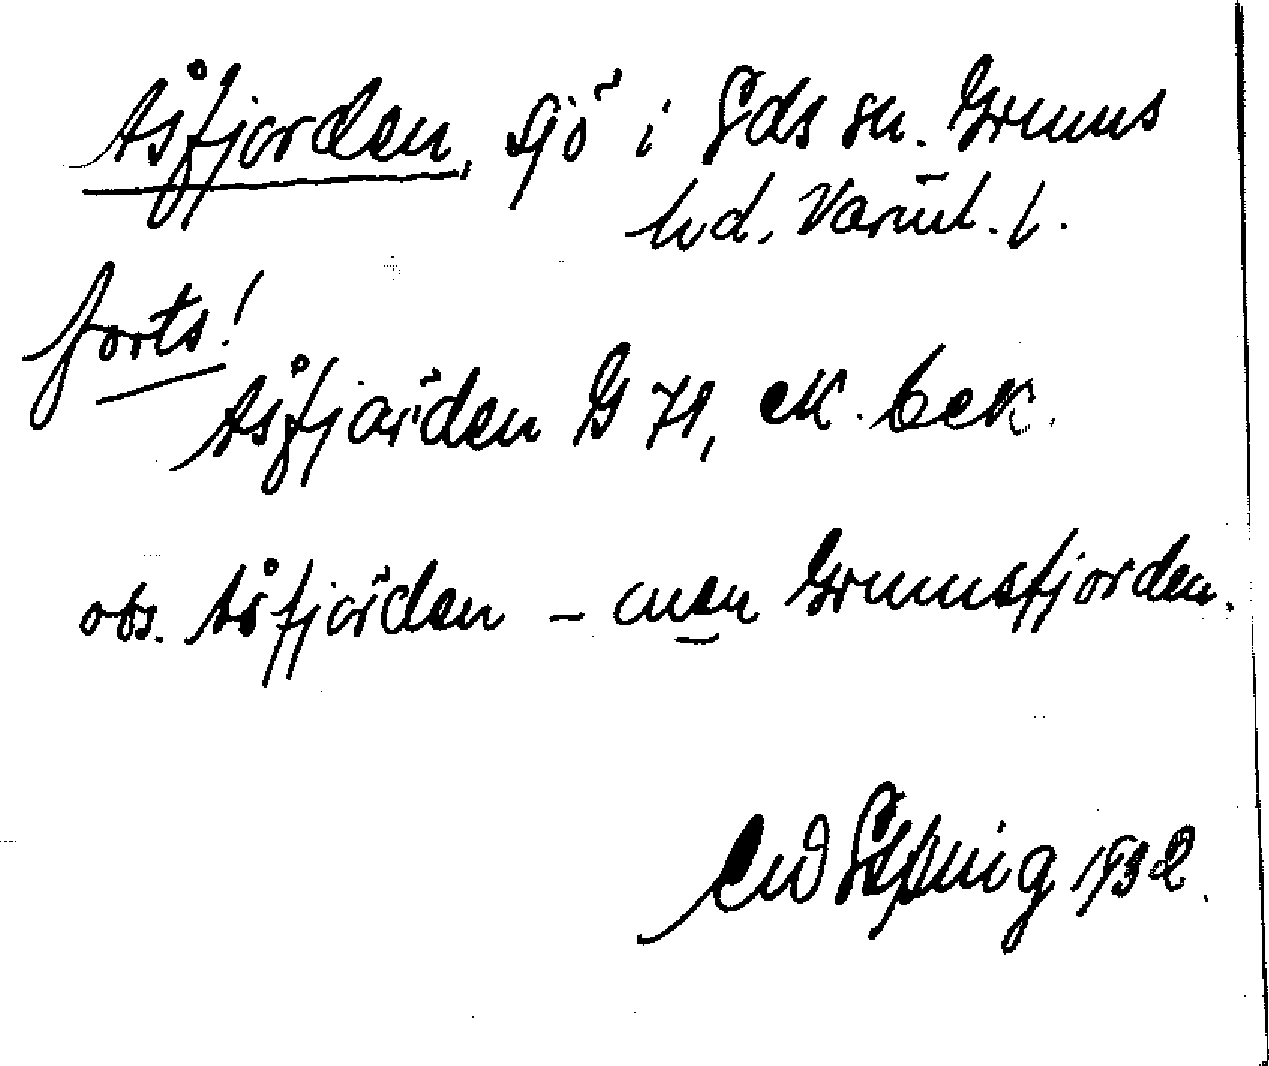 Åsfjorden, sjö i Eds sn. Grums
hd, Värml. l.
forts!
Åsfjörden G 71, ek. bek.
obs. Åsfjörden – men Grumsfjorden.
1932.